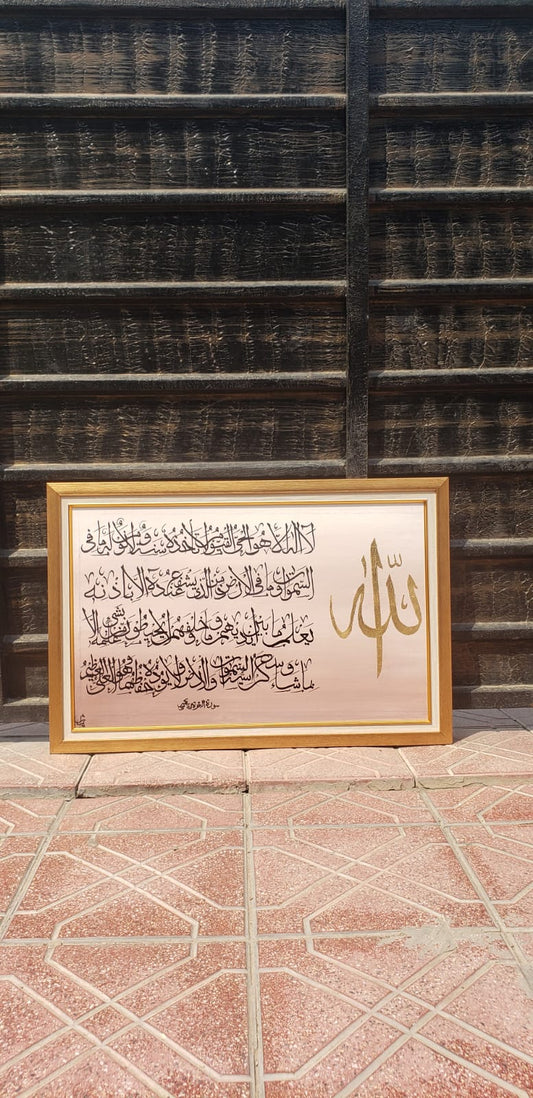 الله
لا اله الا هو الحي القيوم لا تاخذه سنة ولا نوم له ما في
السموات وما في الارض من الذي يشفع عنده الا باذنه
يعلم ما بين ايديهم وما خلفهم ولا يحيطون بشيء الا
بما شاء وسع كرسيه السموات والارض ولا يؤده حفظهما وهو العلي العظيم
سورة البقرة